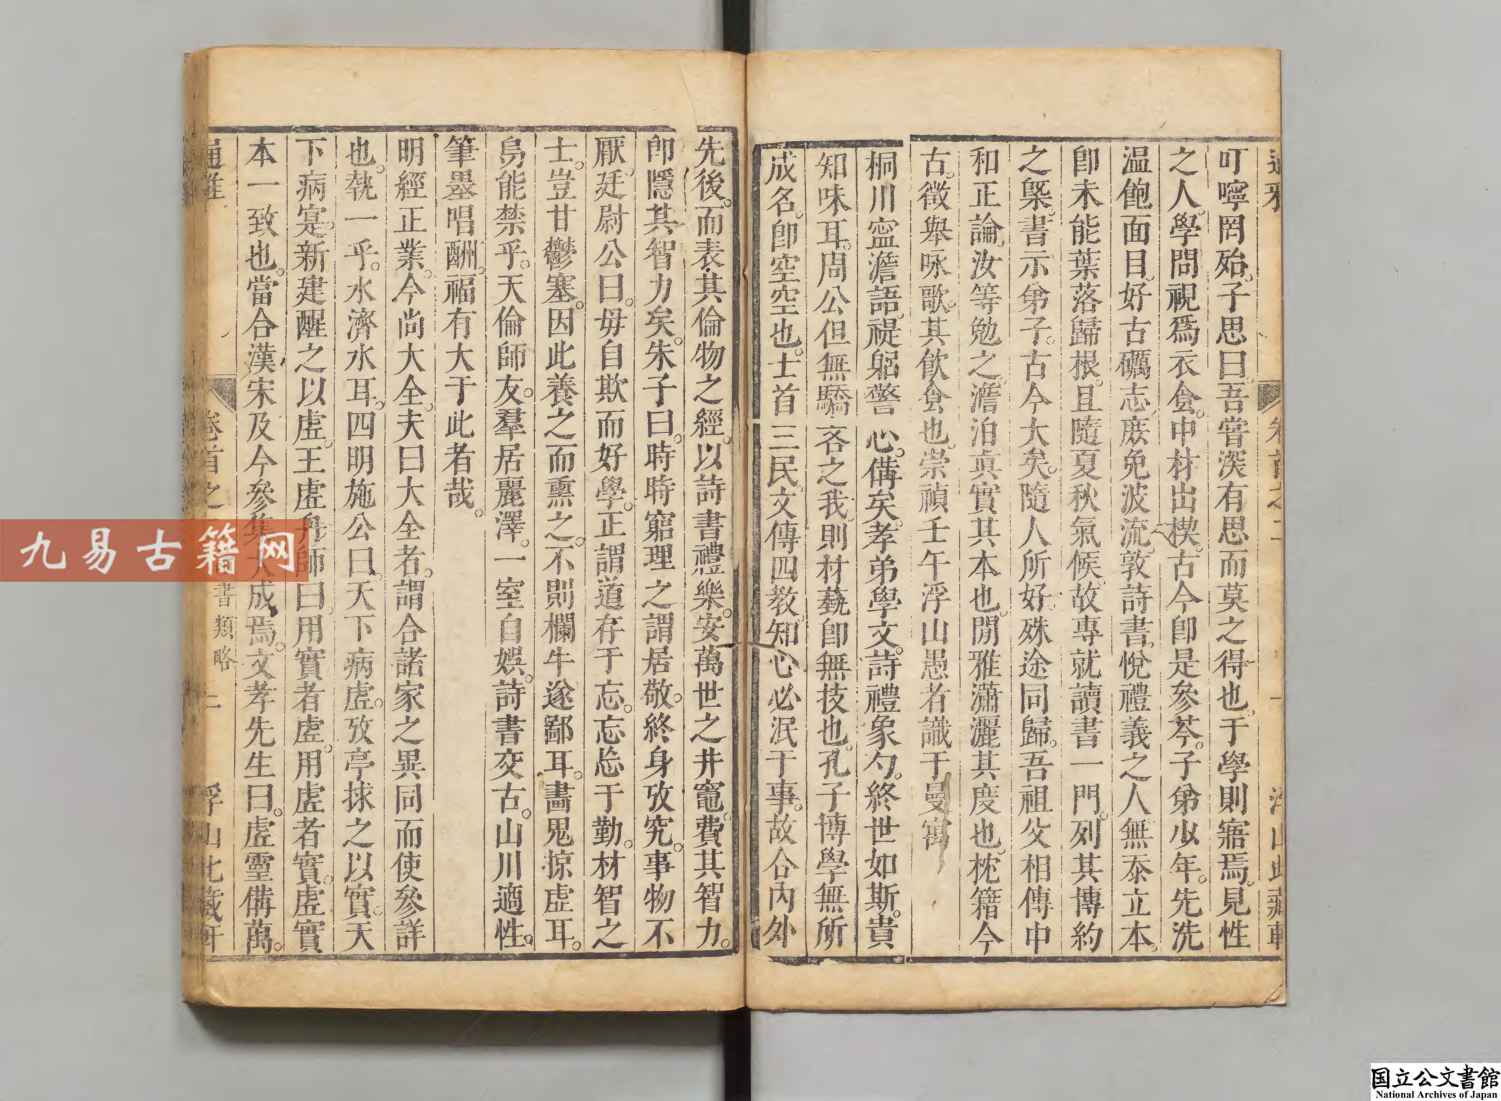 叮嚀罔殆。子思曰。吾嘗深有思而莫之得也。于學則寤焉。見性
之人。學問視爲衣食。中材出楔。古今卽是參苓。子弟少年。先洗
溫飽面目。好古礪志。庶免波流。敦詩書。悅禮義之人。無忝立本。
卽未能葉落歸根。且隨夏秋氣候。故專就讀書一門。列其傳約
之槩。書示弟子。古今大矣。隨人所好。殊途同歸。吾祖父相傳中
和正論。汝等勉之。澹泊眞實其本也。閒雅瀟灑其度也。枕籍今
古。徵舉咏歌。其飲食也。崇禎壬午浮山愚者識于曼寓
桐川寍澹語。褆躬警心。備矣。孝弟學文。詩禮象勺。終世如斯。貴
知味耳。周公但無驕吝之我。則材蓺卽無技也。孔子博學無所
成名。卽空空也。士首三民。文傳四教。知心必泯于事。故合內外
先後。而表其倫物之經。以詩書禮樂。安萬世之井竈。費其智力。
卽隱其智力矣。朱子曰。時時窮理之謂居敬。終身攷究。事物不
厭。廷尉公曰。毋自欺而好學。正謂道存于忘。忘忘于勤。材智之
士。豈甘鬱塞。因此養之而熏之。不則欄牛遂鄙耳。畫鬼掠虛耳。
烏能禁乎。天倫師友。羣居麗澤。一室自娛。詩書交古。山川適性。
筆墨唱酬。福有大于此者哉。
明經正業。今尚大全。夫曰大全者。謂合諸家之異同而使參詳
也。執一乎。水濟水耳。四明施公曰。天下病虛。攷亭捄之以實。天
下病寔。新建醒之以虛。王虛舟師曰。用實者虛。用虛者實。虛實
本一致也。當合漢宋及今參集大成焉。文孝先生曰。虛靈備萬。
通雅
卷首之
書類略
二
浮山此藏軒
九易古籍网
国立公文書館
National Archives of Japan